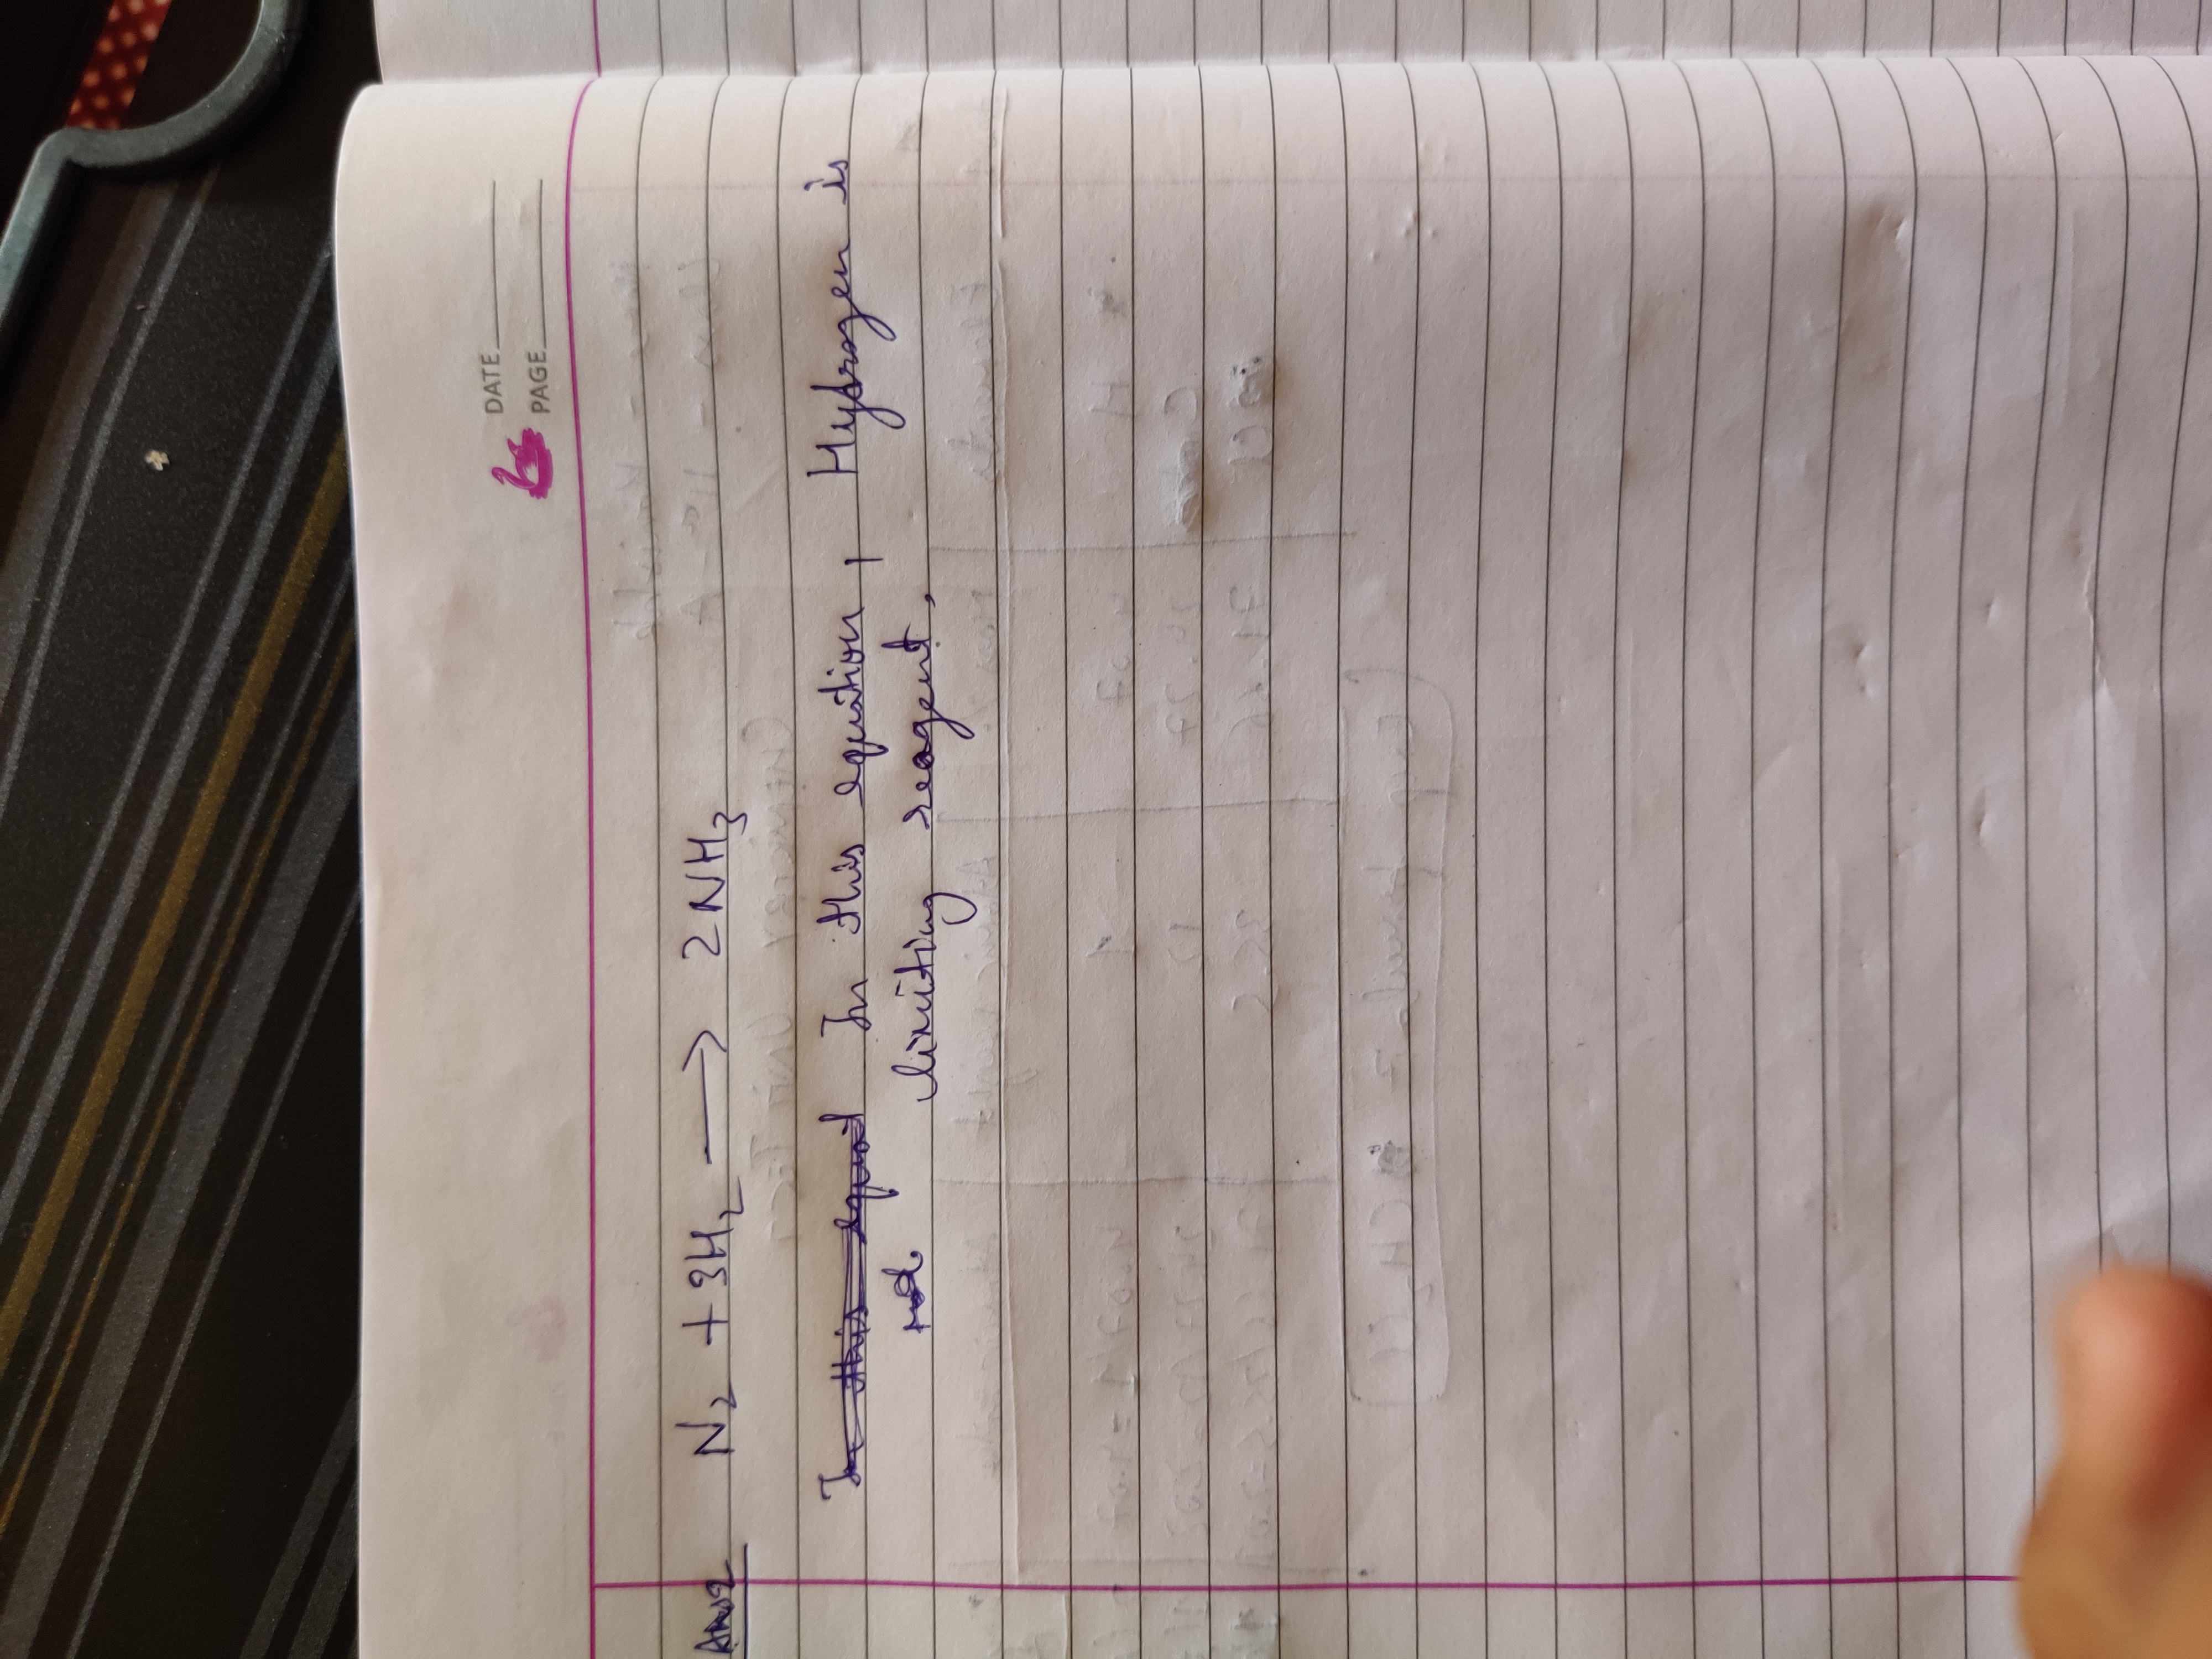 DATE
PAGE
Ans2 N₂ + 3H₂ ⟶ 2NH₃
In this equat In this equation, Hydrogen is
limiting reagent.